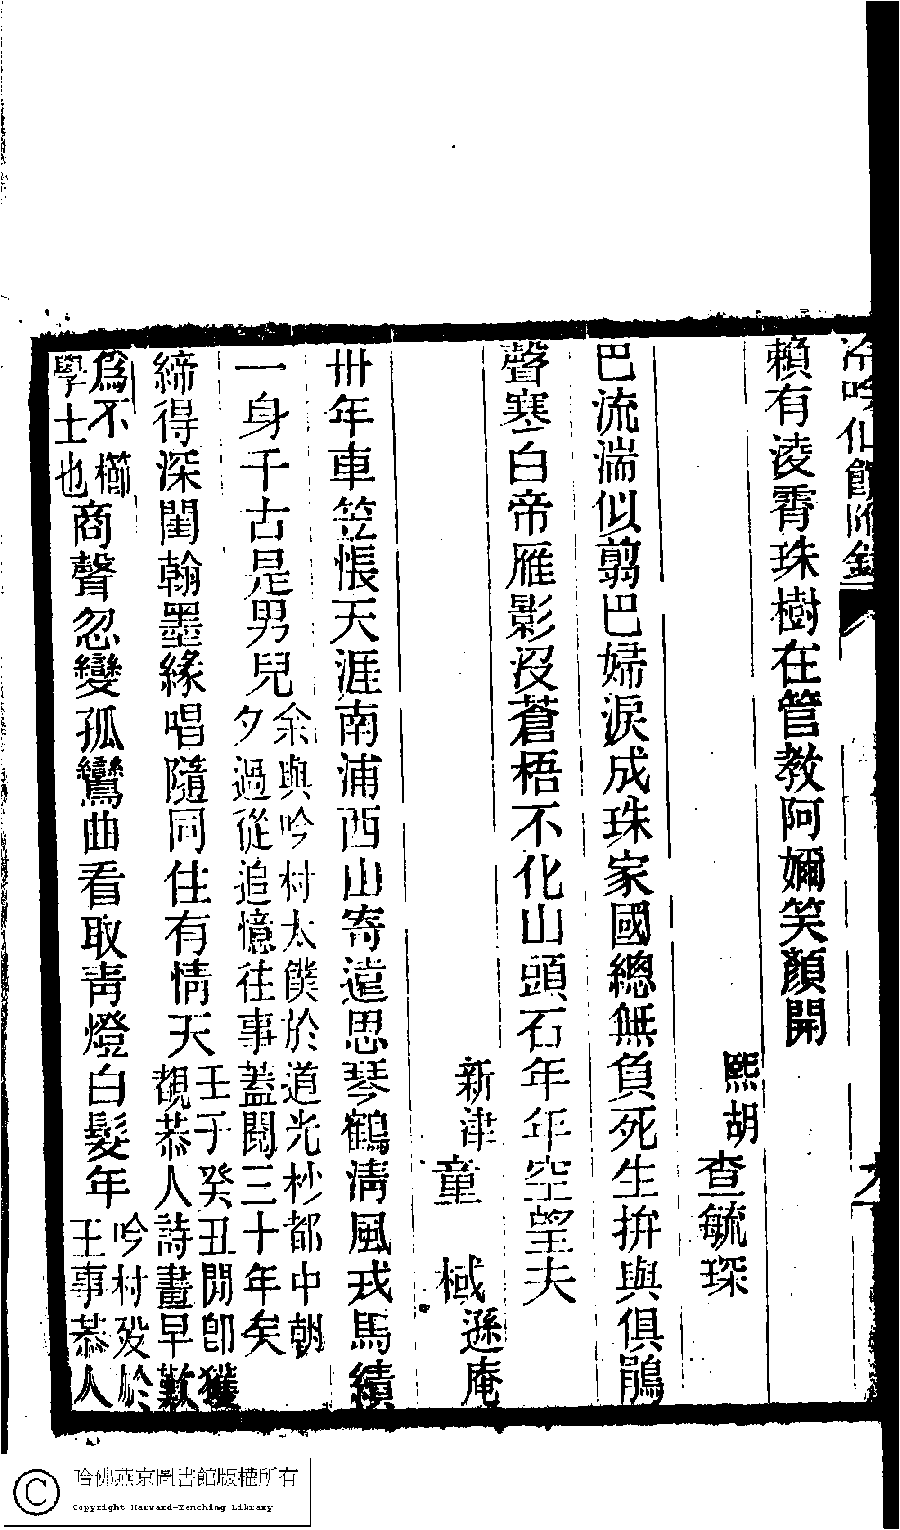 冷吟仙館附錄
賴有淩霄珠樹在管教阿嬭笑顏開
熙胡 查毓琛
巴流湍似翦巴婦淚成珠家國總無負死生拚與俱鵑
聲寒白帝雁影沒蒼梧不化山頭石年年空望夫
新津 童 棫 遜庵
卅年車笠悵天涯南浦西山寄遠思琴鶴淸風戎馬績
一身千古是男兒 余與吟村太僕於道光杪都中朝
夕過從追憶往事蓋閱三十年矣
締得深閨翰墨緣唱隨同住有情天 壬子癸丑閒卽獲
覩恭人詩畫早歎
爲不櫛
學士也 商聲忽變孤鸞曲看取靑燈白髮年 吟村歿於
王事恭人
哈佛燕京圖書館版權所有
Copyright Harvard-Yenching Library